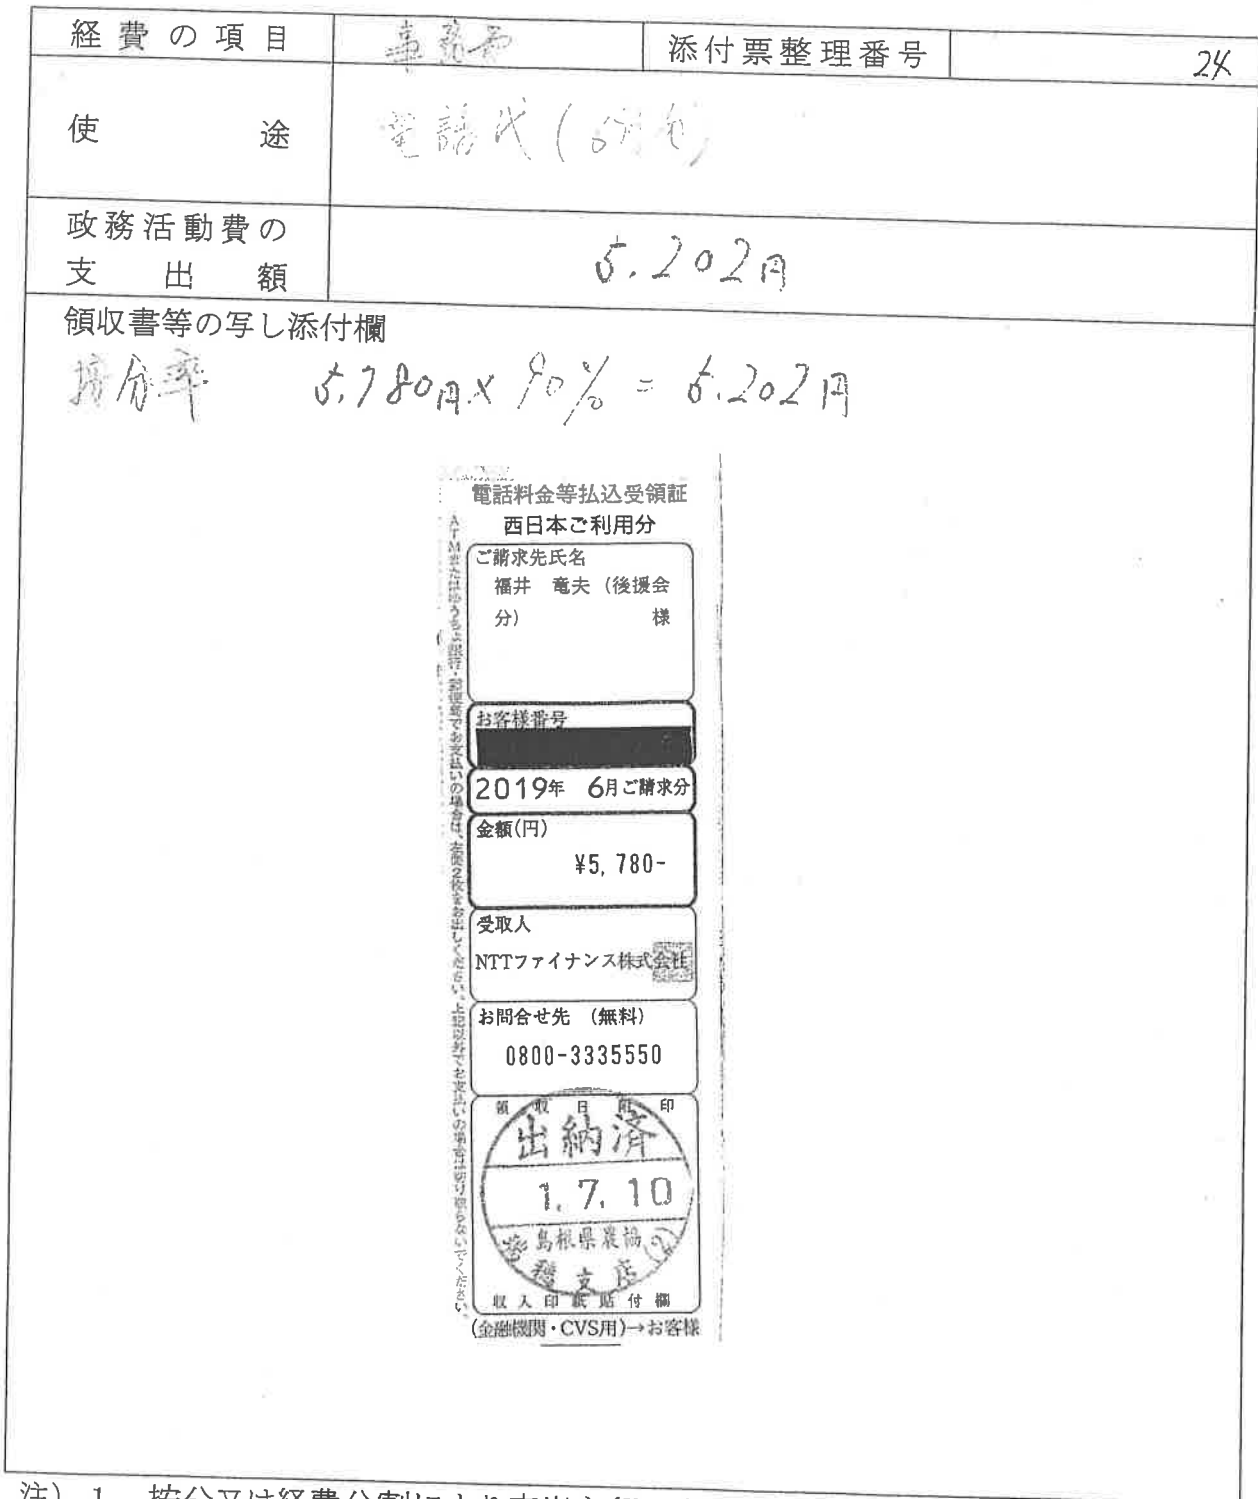 経費の項目 事務費 添付票整理番号 24
使途 電話代(6月分)
政務活動費の
支出額 5.202円
領収書等の写し添付欄
按分率 5.780円×90%=5.202円
電話料金等払込受領証
西日本ご利用分
ご請求先氏名
福井 竜夫(後援会
分) 様
お客様番号
2019年 6月ご請求分
金額(円)
¥5,780-
受取人
NTTファイナンス株式会社
お問合せ先 (無料)
0800-3335550
領収日附印
出納済
1.7.10
島根県農協
支店(2)
収入印紙貼付欄
(金融機関・CVS用)→お客様
ATMまたはゆうちょ銀行・郵便局でお支払いの場合は、左側2枚をお出しください。上記以外でお支払いの場合は切り取らないでください。
注) 1 按分又は経費分割により支出